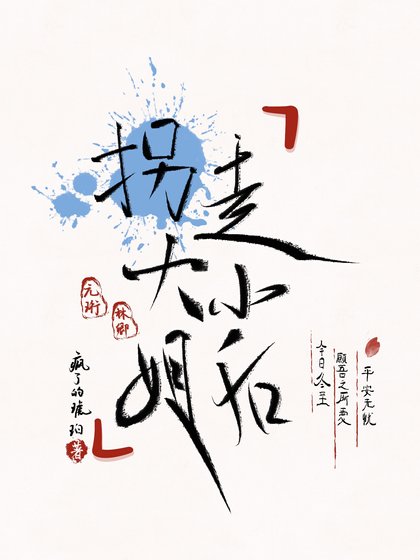 拐走
大小
姐后
元珩
林卿
疯了的琥珀 著
今日冬至
願吾之所爱
平安无忧